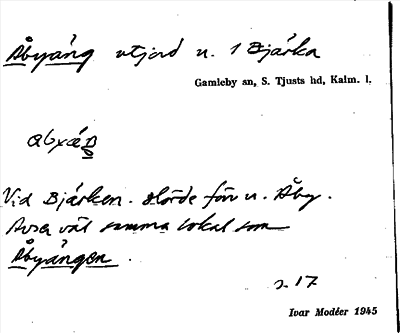 Åbyäng utjord n. 1 Bjärka
Gamleby sn, S. Tjusts hd, Kalm. l.
Vid Bjärken. Hörde förr u. Åby.
Avser väl samma lokal som
Åbyängen.
s. 17
Ivar Modéer 1945